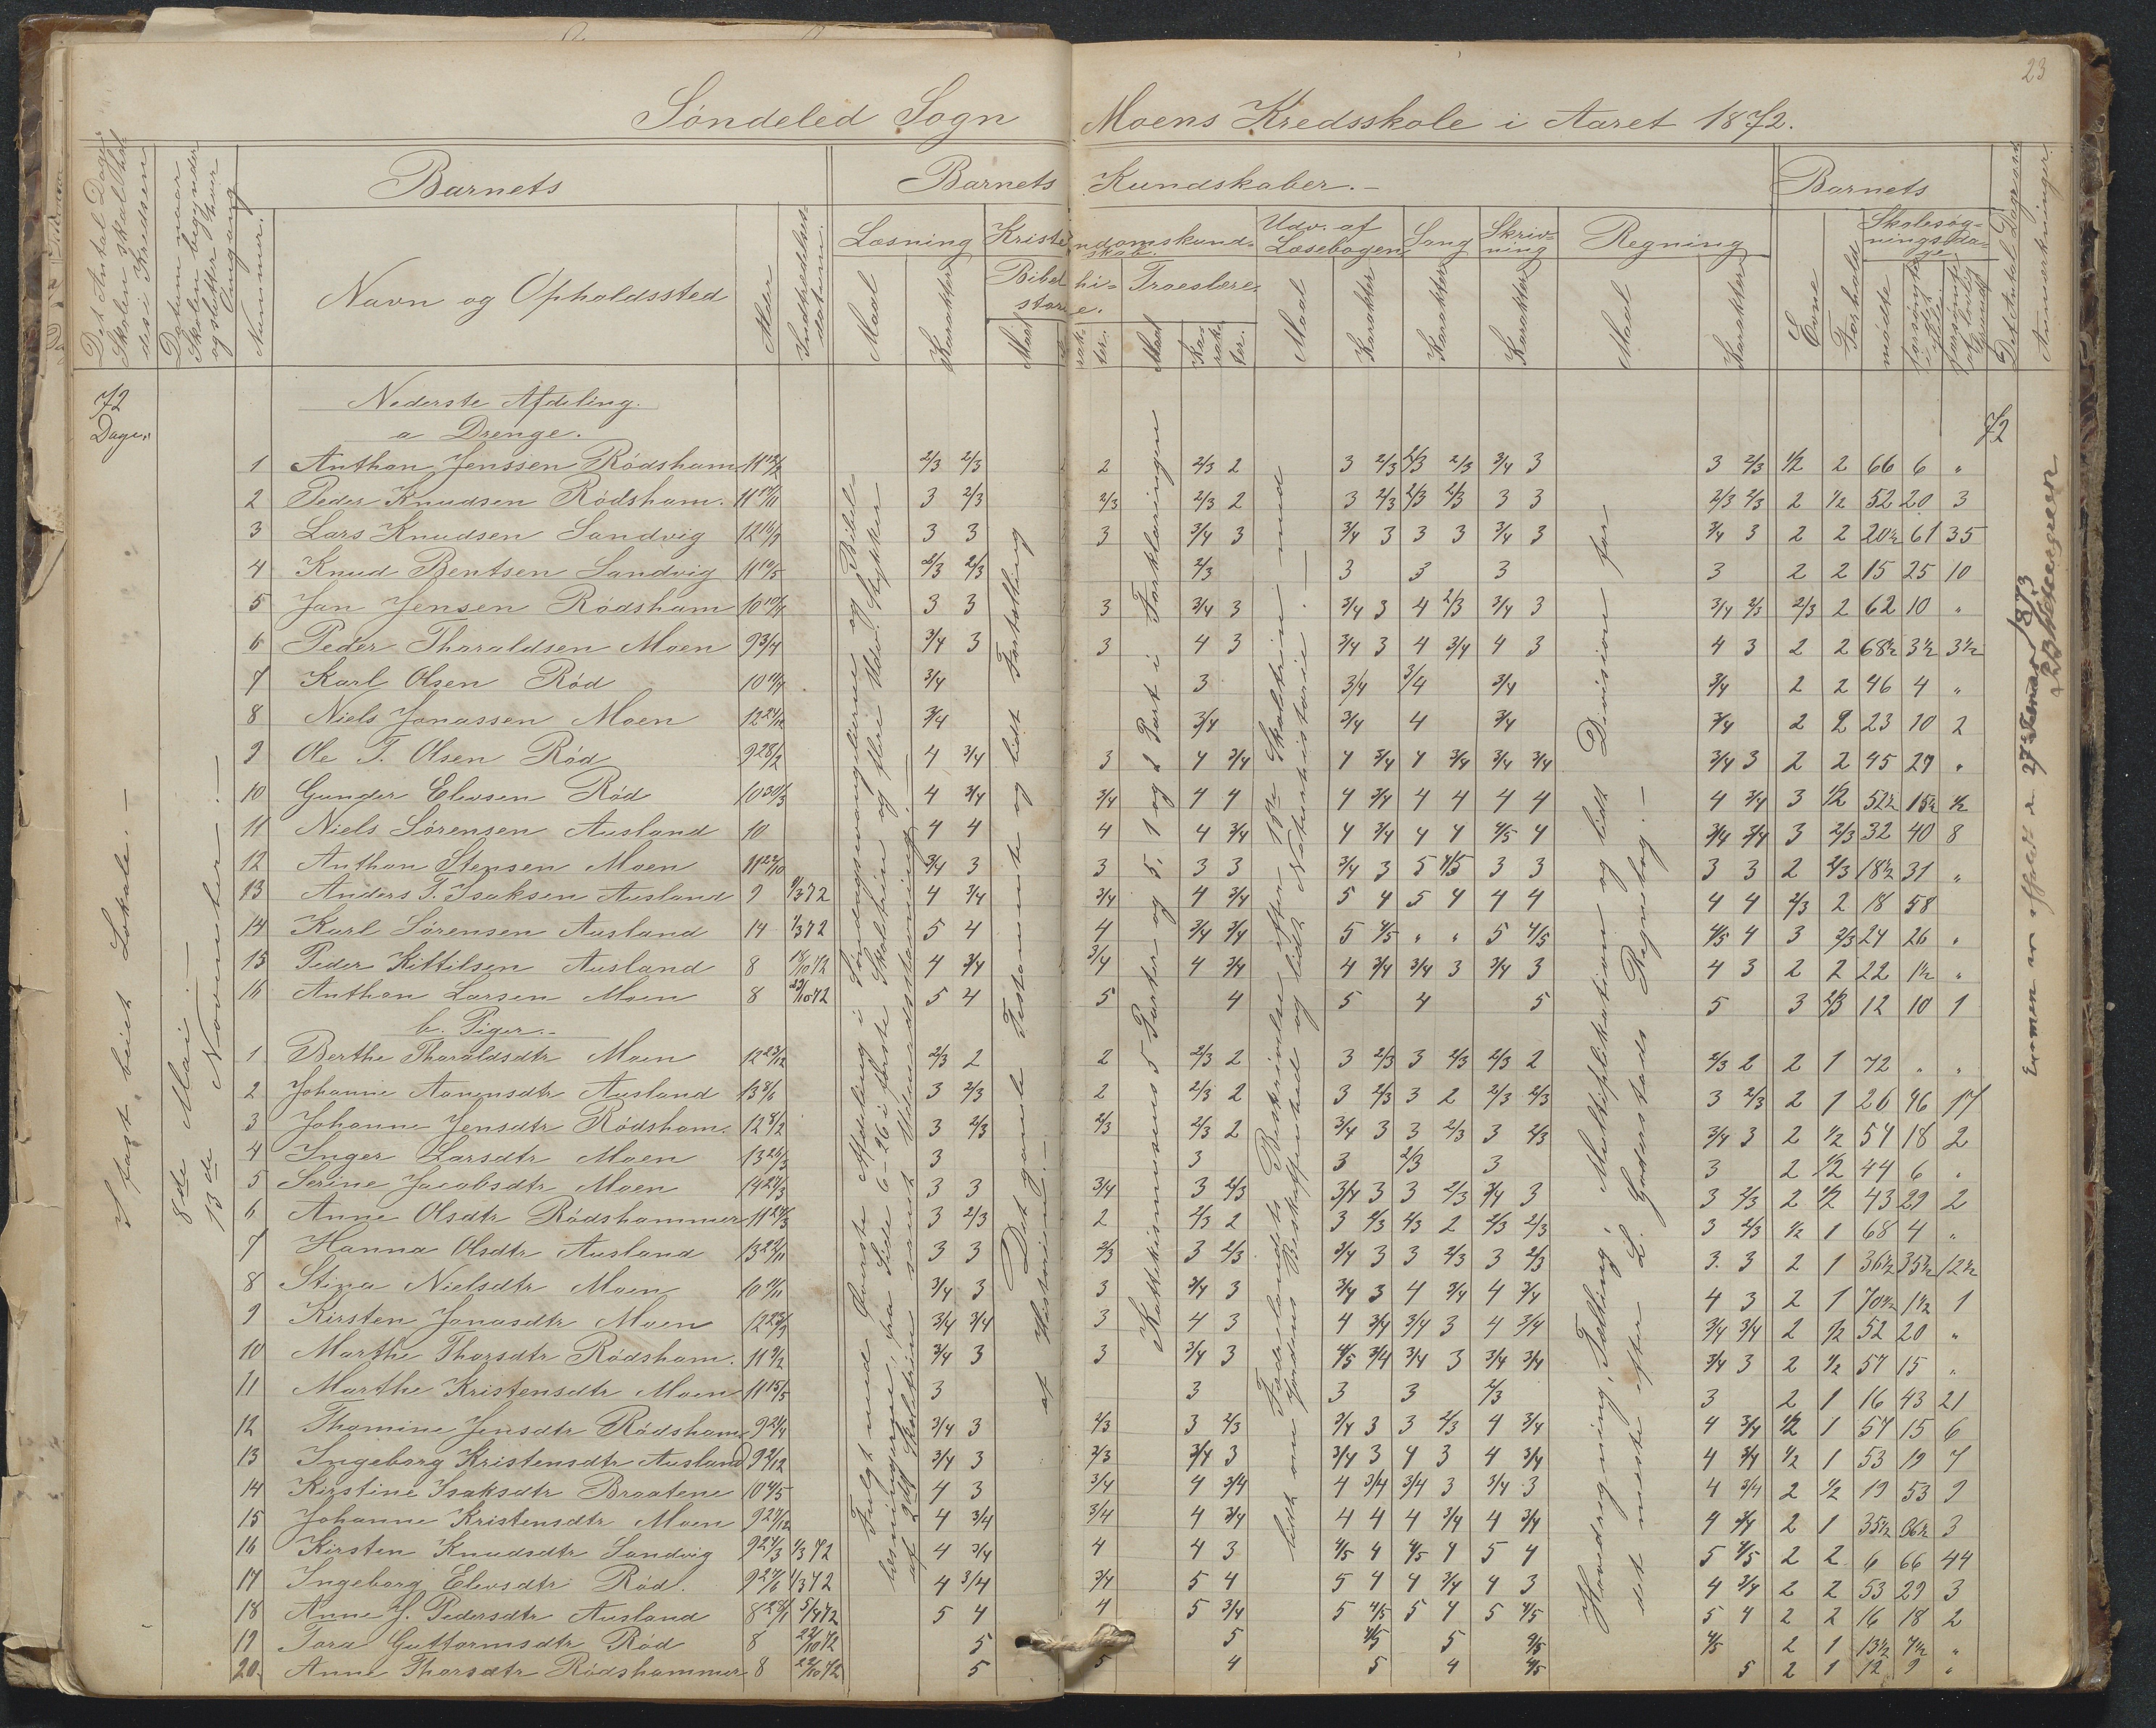 23
Søndeled Sogn Moens Kredsskole i Aaret 1872.
Det Antal Dage Skolen skal holdes i Kredsen
Datum naar Skolen begynder og slutter hver Omgang
Nummer.
Barnets
Navn og Opholdssted
Alder
Indtrædelses-datum.
Barnets Kundskaber.-
Læsning
Maal
Karakter
Kristendomskundskab.
Bibelhistorie.
Maal
Troeslære.
Maal
Karakter.
Udv. af Læsebogen.
Maal
Karakter
Sang
Karakter
Skrivning
Karakter
Regning
Maal
Karakter
Barnets
Evne
Forhold
Skolesøgningsdage
mødte
Det Antal Dage
Anmærkninger.
72
Dage.
I fast, leiet Lokale.-
8de Mai -
13de November.-
Nederste Afdeling.
a Drenge.
72
1 Anthon Jenssen Rødsham 2/3 2/3 2 2/3 2 3 2/3 2/3 2/3 3/4 3 3 2/3 1/2 2 66 6 "
2 Peder Knudsen Rødsham. 3 2/3 2/3 2/3 2 3 2/3 2/3 2/3 3 3 2/3 2/3 2 1/2 52 20 3
3 Lars Knudsen Sandvig 3 3 3 3/4 3 3/4 3 3 3 3/4 3 3/4 3 2 2 20½ 61 35
4 Knud Bentsen Sandvig 2/3 2/3 2/3 3 3 3 3 2 2 15 25 10
5 Jan Jensen Rødsham 3 3 3 3/4 3 3/4 3 4 2/3 3/4 3 3/4 2/3 2/3 2 62 10 "
6 Peder Tharaldsen Moen 3/4 3 3 4 3 3/4 3 4 3/4 4 3 4 3 2 2 68½ 3½ 3½
7 Karl Olsen Rød 3/4 3 3/4 3/4 3/4 3/4 2 2 46 4 "
8 Niels Jonassen Moen 3/4 3/4 3/4 4 3/4 3/4 2 2 23 10 2
9 Ole T. Olsen Rød 9 28/2 4 3/4 3 4 3/4 4 3/4 4 3/4 3/4 3/4 3/4 3 2 2 45 27 "
10 Gunder Elevsen Rød 10 30/3 4 3/4 3/4 4 4 4 3/4 4 4 4 4 4 3/4 3 1/2 52½ 15½ ½
11 Niels Sörensen Ausland 10 4 4 4 4 3/4 4 3/4 4 4 4/5 4 3/4 3/4 3 2/3 32 40 8
12 Anthon Stensen Moen 3/4 3 3 3 3 3/4 3 5 4/5 3 3 3 3 2 2/3 18½ 31 "
13 Anders T. Isaksen Ausland 9 4 3/4 3/4 4 3/4 5 4 5 4 4 4 4 4 2/3 2 18 58
14 Karl Sørensen Ausland 14 5 4 4 3/4 3/4 5 4/5 " " 5 4/5 4/5 4 3 2/3 24 26 "
15 Peder Kittilsen Ausland 8 18/10 72 4 3/4 3/4 4 3/4 4 3/4 3/4 3 3/4 3 4 3 2 2 22 1½ "
16 Anthon Larsen Moen 8 5 4 5 4 5 4 5 5 3 2/3 12 10 1
b. Piger.-
1 Berthe Tharaldsdtr Moen 2/3 2 2 2/3 2 3 2/3 3 2/3 2/3 2 2/3 2 2 1 72 " "
2 Johanne Aanensdtr Ausland 3 2/3 2 2/3 2 3 2/3 3 2 2/3 2/3 3 2/3 2 1 26 46 17
3 Johanne Jensdtr Rødsham. 3 2/3 2/3 2/3 2 3/4 3 3 2/3 3 2/3 3/4 3 2 1/2 54 18 2
4 Inger Larsdtr Moen 3 3 3 2/3 3 3 2 1/2 44 6 "
5 Serine Jacobsdtr Moen 3 3 3/4 3 2/3 3/4 3 3 2/3 3/4 3 3 2/3 2 1/2 43 29 2
6 Anne Olsdtr Rødshammer 3 2/3 2 2/3 2 3 2/3 2/3 2 2/3 2/3 3 2/3 1/2 1 68 4 "
7 Hanna Olsdtr Ausland 3 3 2/3 3 2/3 3/4 3 3 2/3 3 2/3 3. 3 2 1 36½ 35½ 12½
8 Stina Nielsdtr Moen 3/4 3 3 3/4 3 3/4 3 4 3/4 4 3/4 4 3 2 1 70½ 1½ 1
9 Kirsten Jonasdtr Moen 3/4 3/4 3 4 3 4 3/4 3/4 3 4 3/4 3/4 3/4 2 1/2 52 20 "
10 Marthe Thorsdtr Rødsham. 3/4 3 3 3/4 3 4/5 3/4 3/4 3 3/4 3/4 3/4 3 2 1/2 57 15 "
11 Marthe Kristensdtr Moen 11 15/5 3 3 3 3 2/3 3 2 1 16 43 21
12 Thomine Jensdtr Rødsham 3/4 3 2/3 3 2/3 3/4 3 3 2/3 4 3/4 4 3/4 1/2 1 57 15 6
13 Ingeborg Kristensdtr Ausland 3/4 3 2/3 3/4 3 3/4 3 4 3 4 3/4 4 3/4 1/2 1 53 19 7
14 Kirstine Isaksdtr Braatene 4 3 3/4 4 3/4 4 3/4 3/4 3 3/4 3 4 3/4 2 1/2 19 53 9
15 Johanne Kristensdtr Moen 4 3/4 3/4 4 3/4 4 4 4 3/4 4 3/4 4 3/4 2 1 35½ 3
16 Kirsten Knudsdtr Sandvig 4 3/4 4 4 3 4/5 4 4/5 4 5 4 5 4/5 2 2 6 66 44
17 Ingeborg Elevsdtr Rød. 4 3/4 3/4 5 4 5 4 4 3/4 4 3 4 3/4 2 2 53 29 3
18 Anne J. Pedersdtr Ausland 5 4 4 5 3/4 5 4/5 5 4 5 4/5 5 4 2 2 16 18 2
19 Tora Guttormsdtr Rød 8 22/10 72 5 5 4/5 5 4/5 4/5 2 1 13½ 7½ "
20. Anne Thorsdtr Rødshammer 8 22/10 72 5 5 4 5 4 4/5 5 2 1 12 9 "
Fulgt med Øverste Afdeling i Søndagsevangelierne og Bibel-
læsningerne, fra Side 6-26 i første Skoletrin og flere Udv. Stykker
af 2det Skoletrin samt Udenadstavning.-
Det gamle Testamente og lidt Fortælling
af Historien.-
Kattekismusens 5 Parter og 5, 1 og 2 Part i Forklaringen
Fædrelandets Beskrivelse efter 1ste Skoletrin - med
lidt om Jordens Beskaffenhed og lidt Naturhistorie.-
Hovedregning, Tælling, Multiplikation og lidt Division for
det meste efter L. Gaderstads Regnebog.-
Examen er afholdt d. 27de Februar 1873